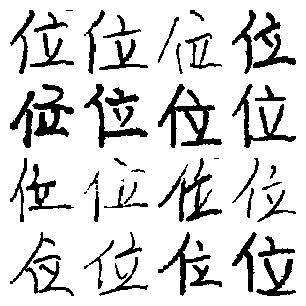 位位位位
位位位位
位位位位
位位位位